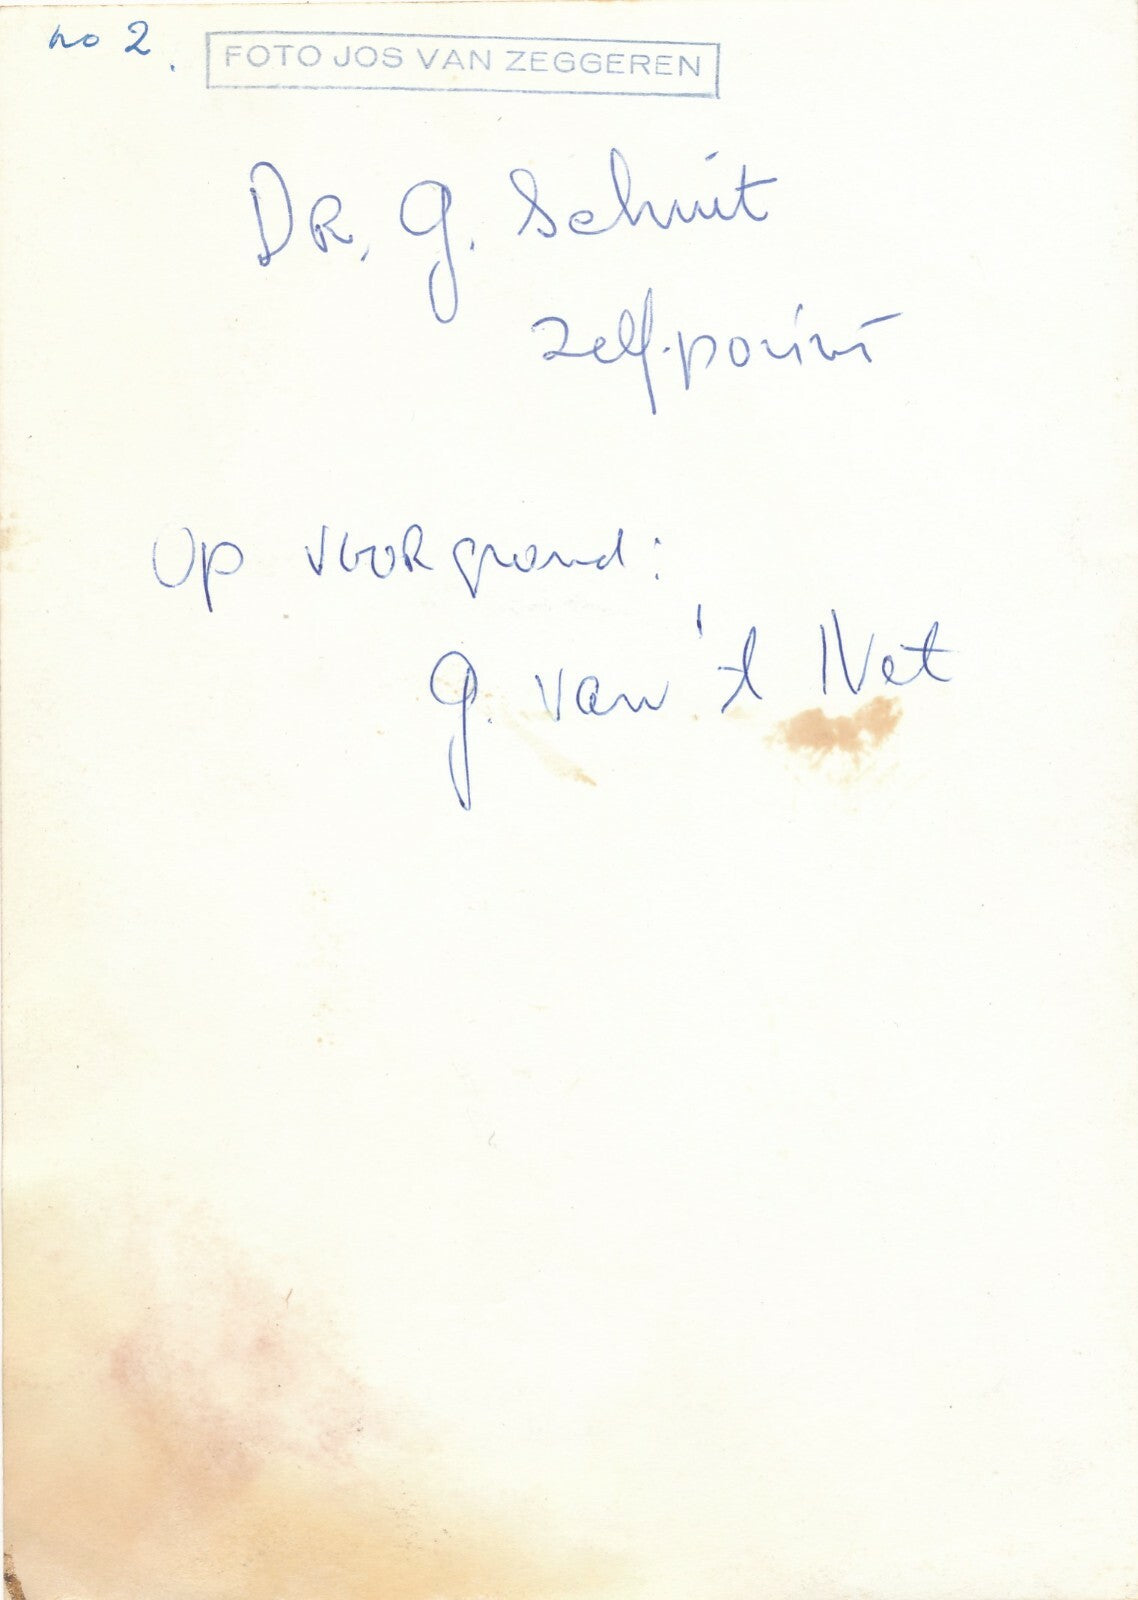 no 2.
FOTO JOS VAN ZEGGEREN
DR. G. Schuit
Op VOORgrond:
G. van 't Net